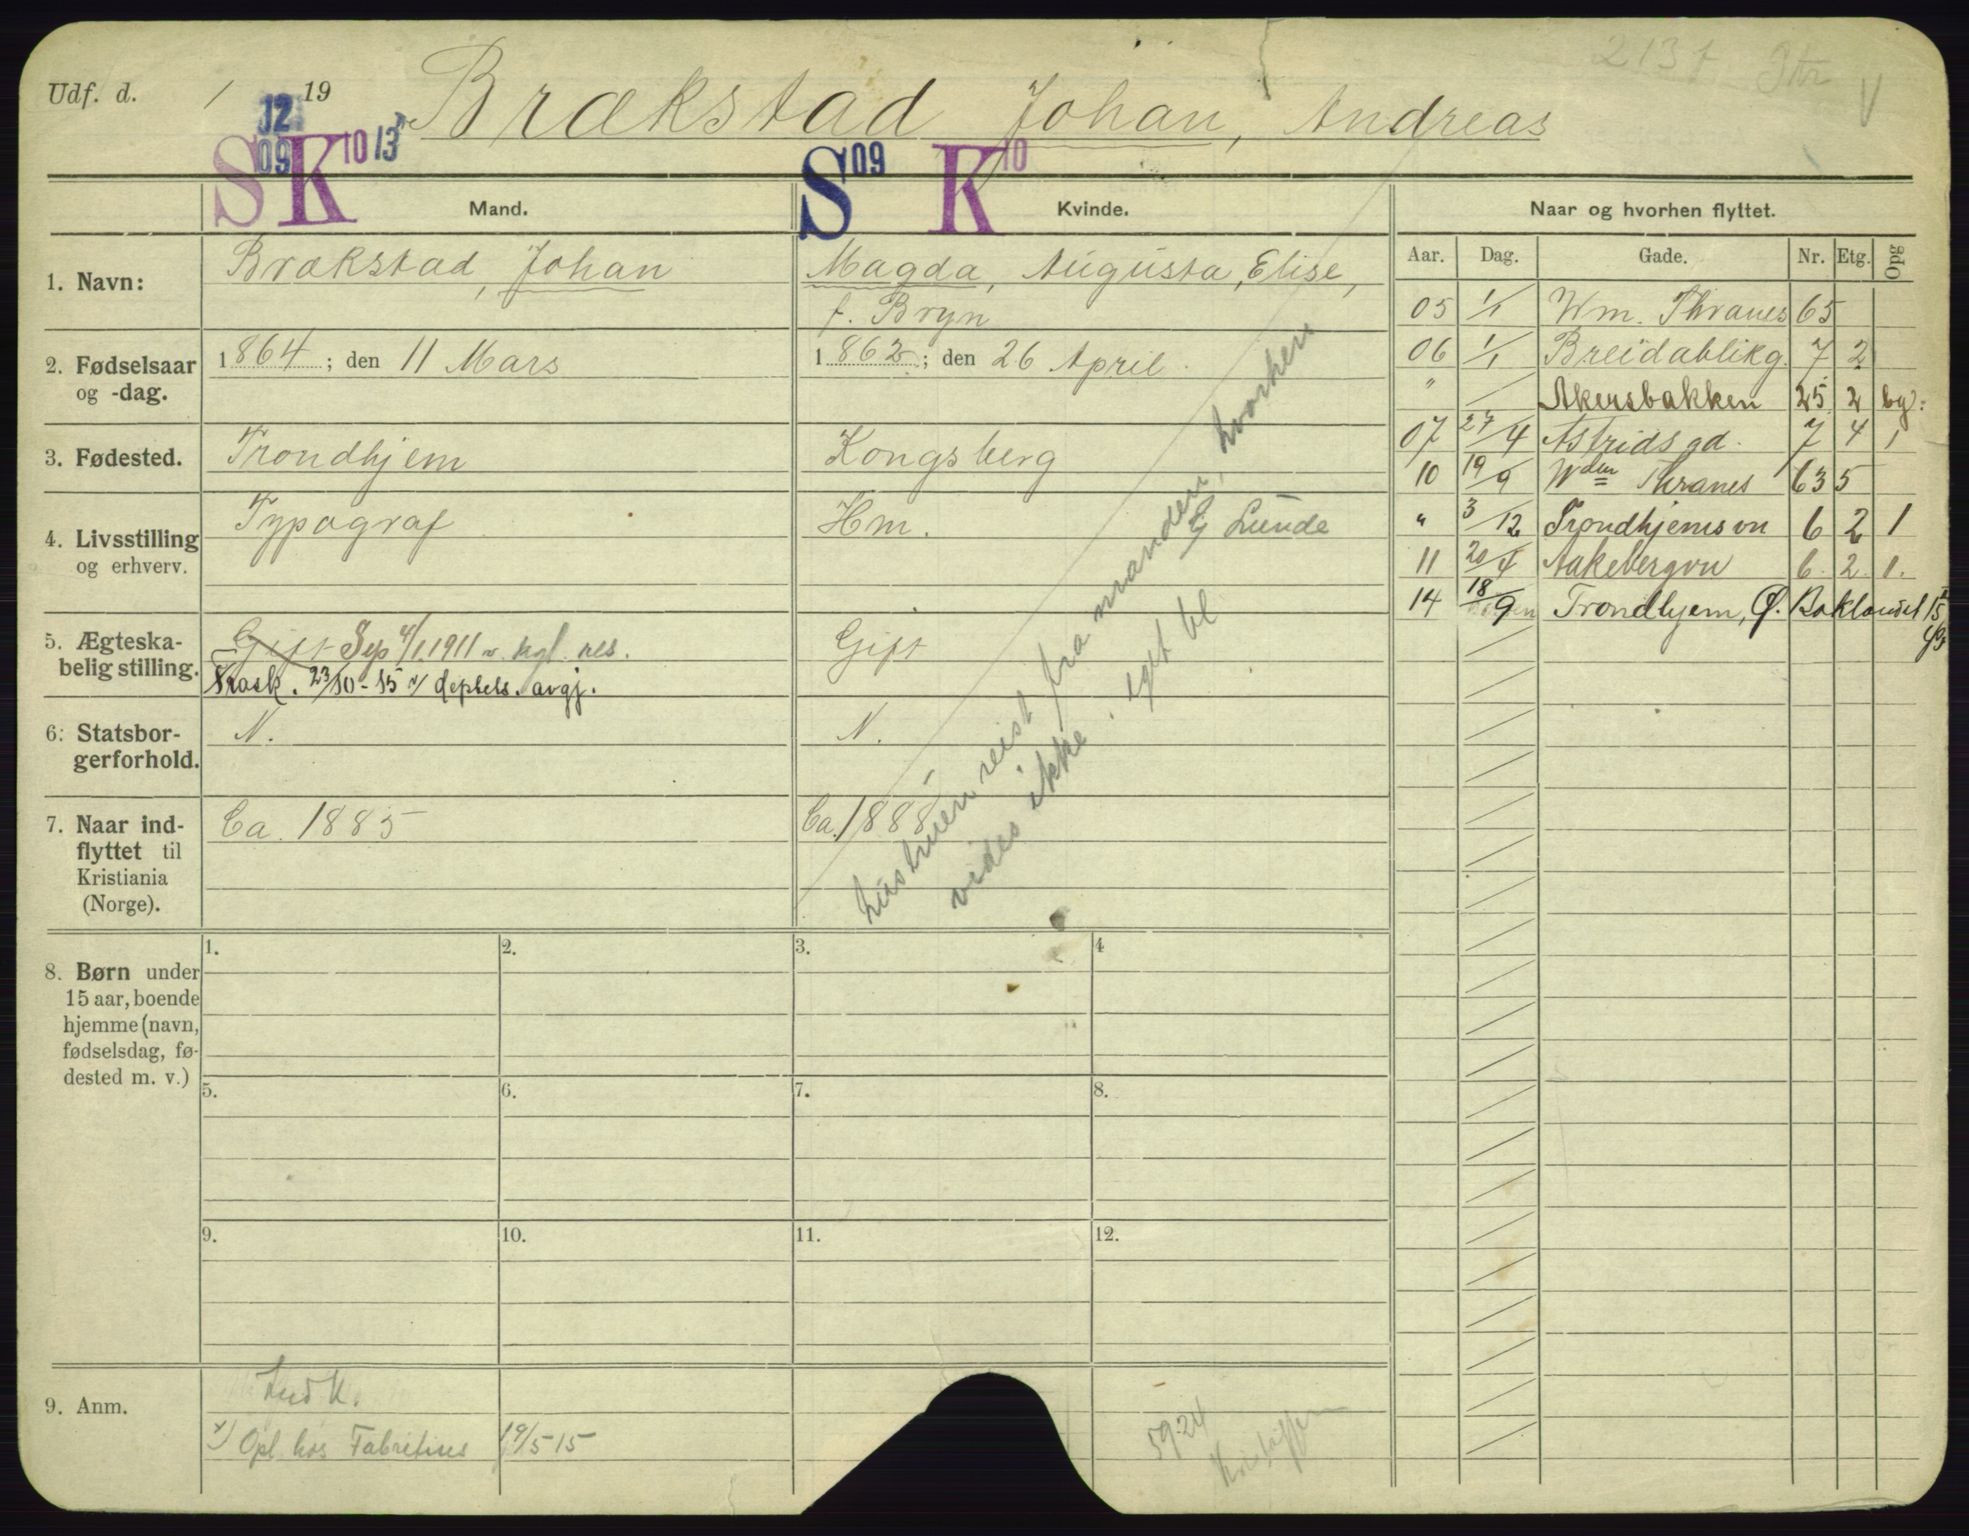 Udf. d. 1 19
12 09
S K 10 13
Brækstad Johan, Andreas
2131
S 09 K 10
Mand.
Kvinde.
Naar og hvorhen flyttet.
1. Navn:
Brækstad, Johan
Magda, Augusta, Elise,
f. Bryn
2. Fødselsaar
og -dag.
1864; den 11 Mars
1862; den 26 April
3. Fødested.
Trondhjem
Kongsberg
4. Livsstilling
og erhverv.
Typograf
Hm.
G Lunde
5. Ægteska-
belig stilling.
Gift Sep 4/1 1911 v. kgl. res.
Frask. 23/10-15 v/ deptets. avgj.
Gift
6. Statsbor-
gerforhold.
N.
N.
7. Naar ind-
flyttet til
Kristiania
(Norge).
Ca. 1885
Ca. 1888
hustruen reist fra manden, hvorhen
vides ikke
8. Børn under
15 aar, boende
hjemme (navn,
fødselsdag, fø-
dested m. v.)
1. 2. 3. 4
5. 6. 7. 8.
9. 10. 11. 12.
9. Anm.
Opl. hos Fabritius 19/5-15
5924
Aar. Dag. Gade. Nr. Etg. Opg
05 1/1 Wm. Thranes 65
06 1/1 Breidablikg. 7 2
" Akersbakken 25 2 bg:
07 27/4 Astrids gd. 7 4 1
10 19/9 Wdm Thranes 63 5
" 3/12 Trondhjemsvn 6 2 1
11 20/4 Aakebergvn 6. 2. 1.
14 18/9 Trondhjem, Ø. Baklandet 15